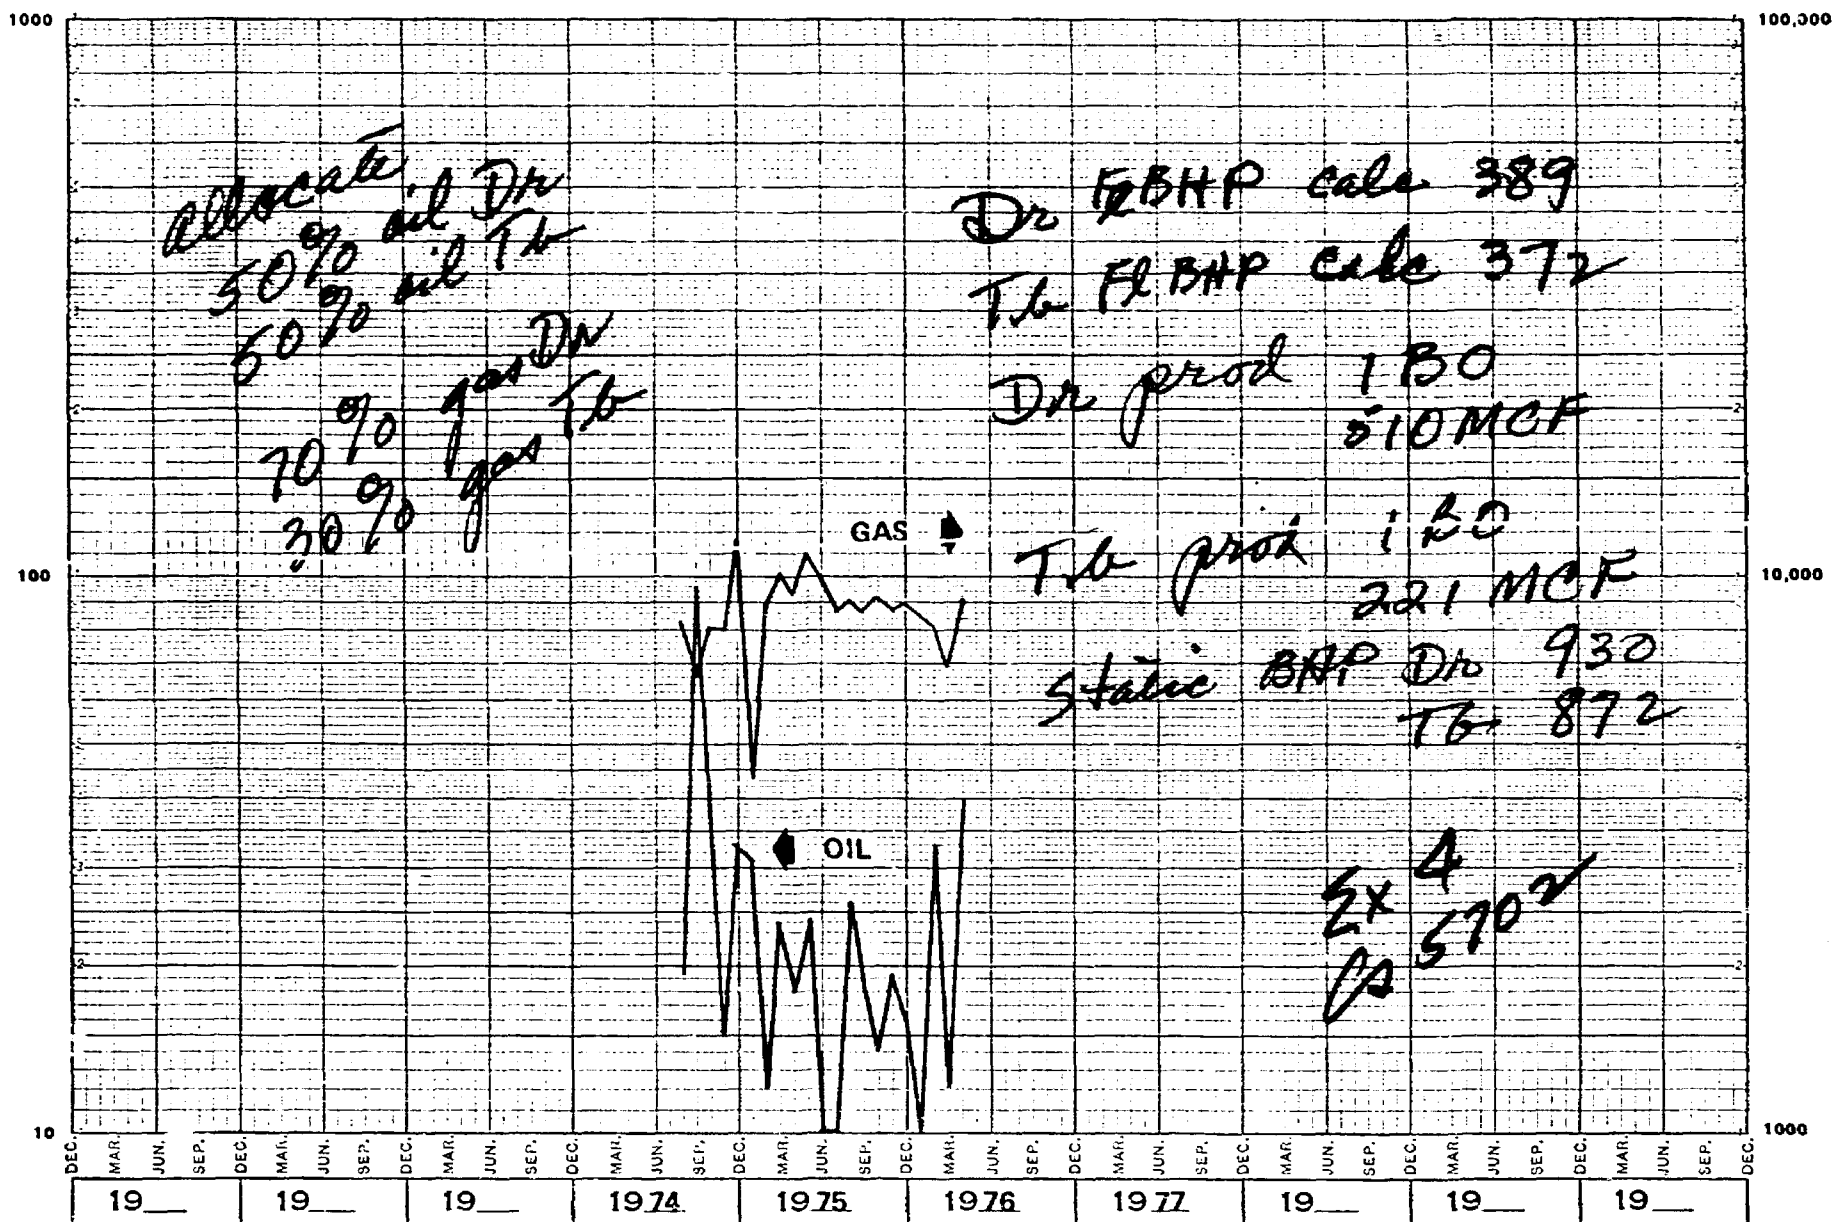 1000
100,000
allocate
50% oil Dr
50% oil Tb
70% gas Dr
30% gas Tb
Dr Fl BHP calc 389
Tb Fl BHP calc 372
Dr prod 1 BO
510 MCF
GAS
Tb prod 1 BO
221 MCF
100
10,000
Static BHP Dr 930
Tb 872
OIL
3
2
2
2
2
Ex 4
CA 5702
10
1000
DEC. MAR. JUN. SEP. DEC. MAR. JUN. SEP. DEC. MAR. JUN. SEP. DEC. MAR. JUN. SEP. DEC. MAR. JUN. SEP. DEC. MAR. JUN. SEP. DEC. MAR. JUN. SEP. DEC. MAR. JUN. SEP. DEC. MAR. JUN. SEP. DEC. MAR. JUN. SEP. DEC.
19__ 19__ 19__ 1974 1975 1976 1977 19__ 19__ 19__